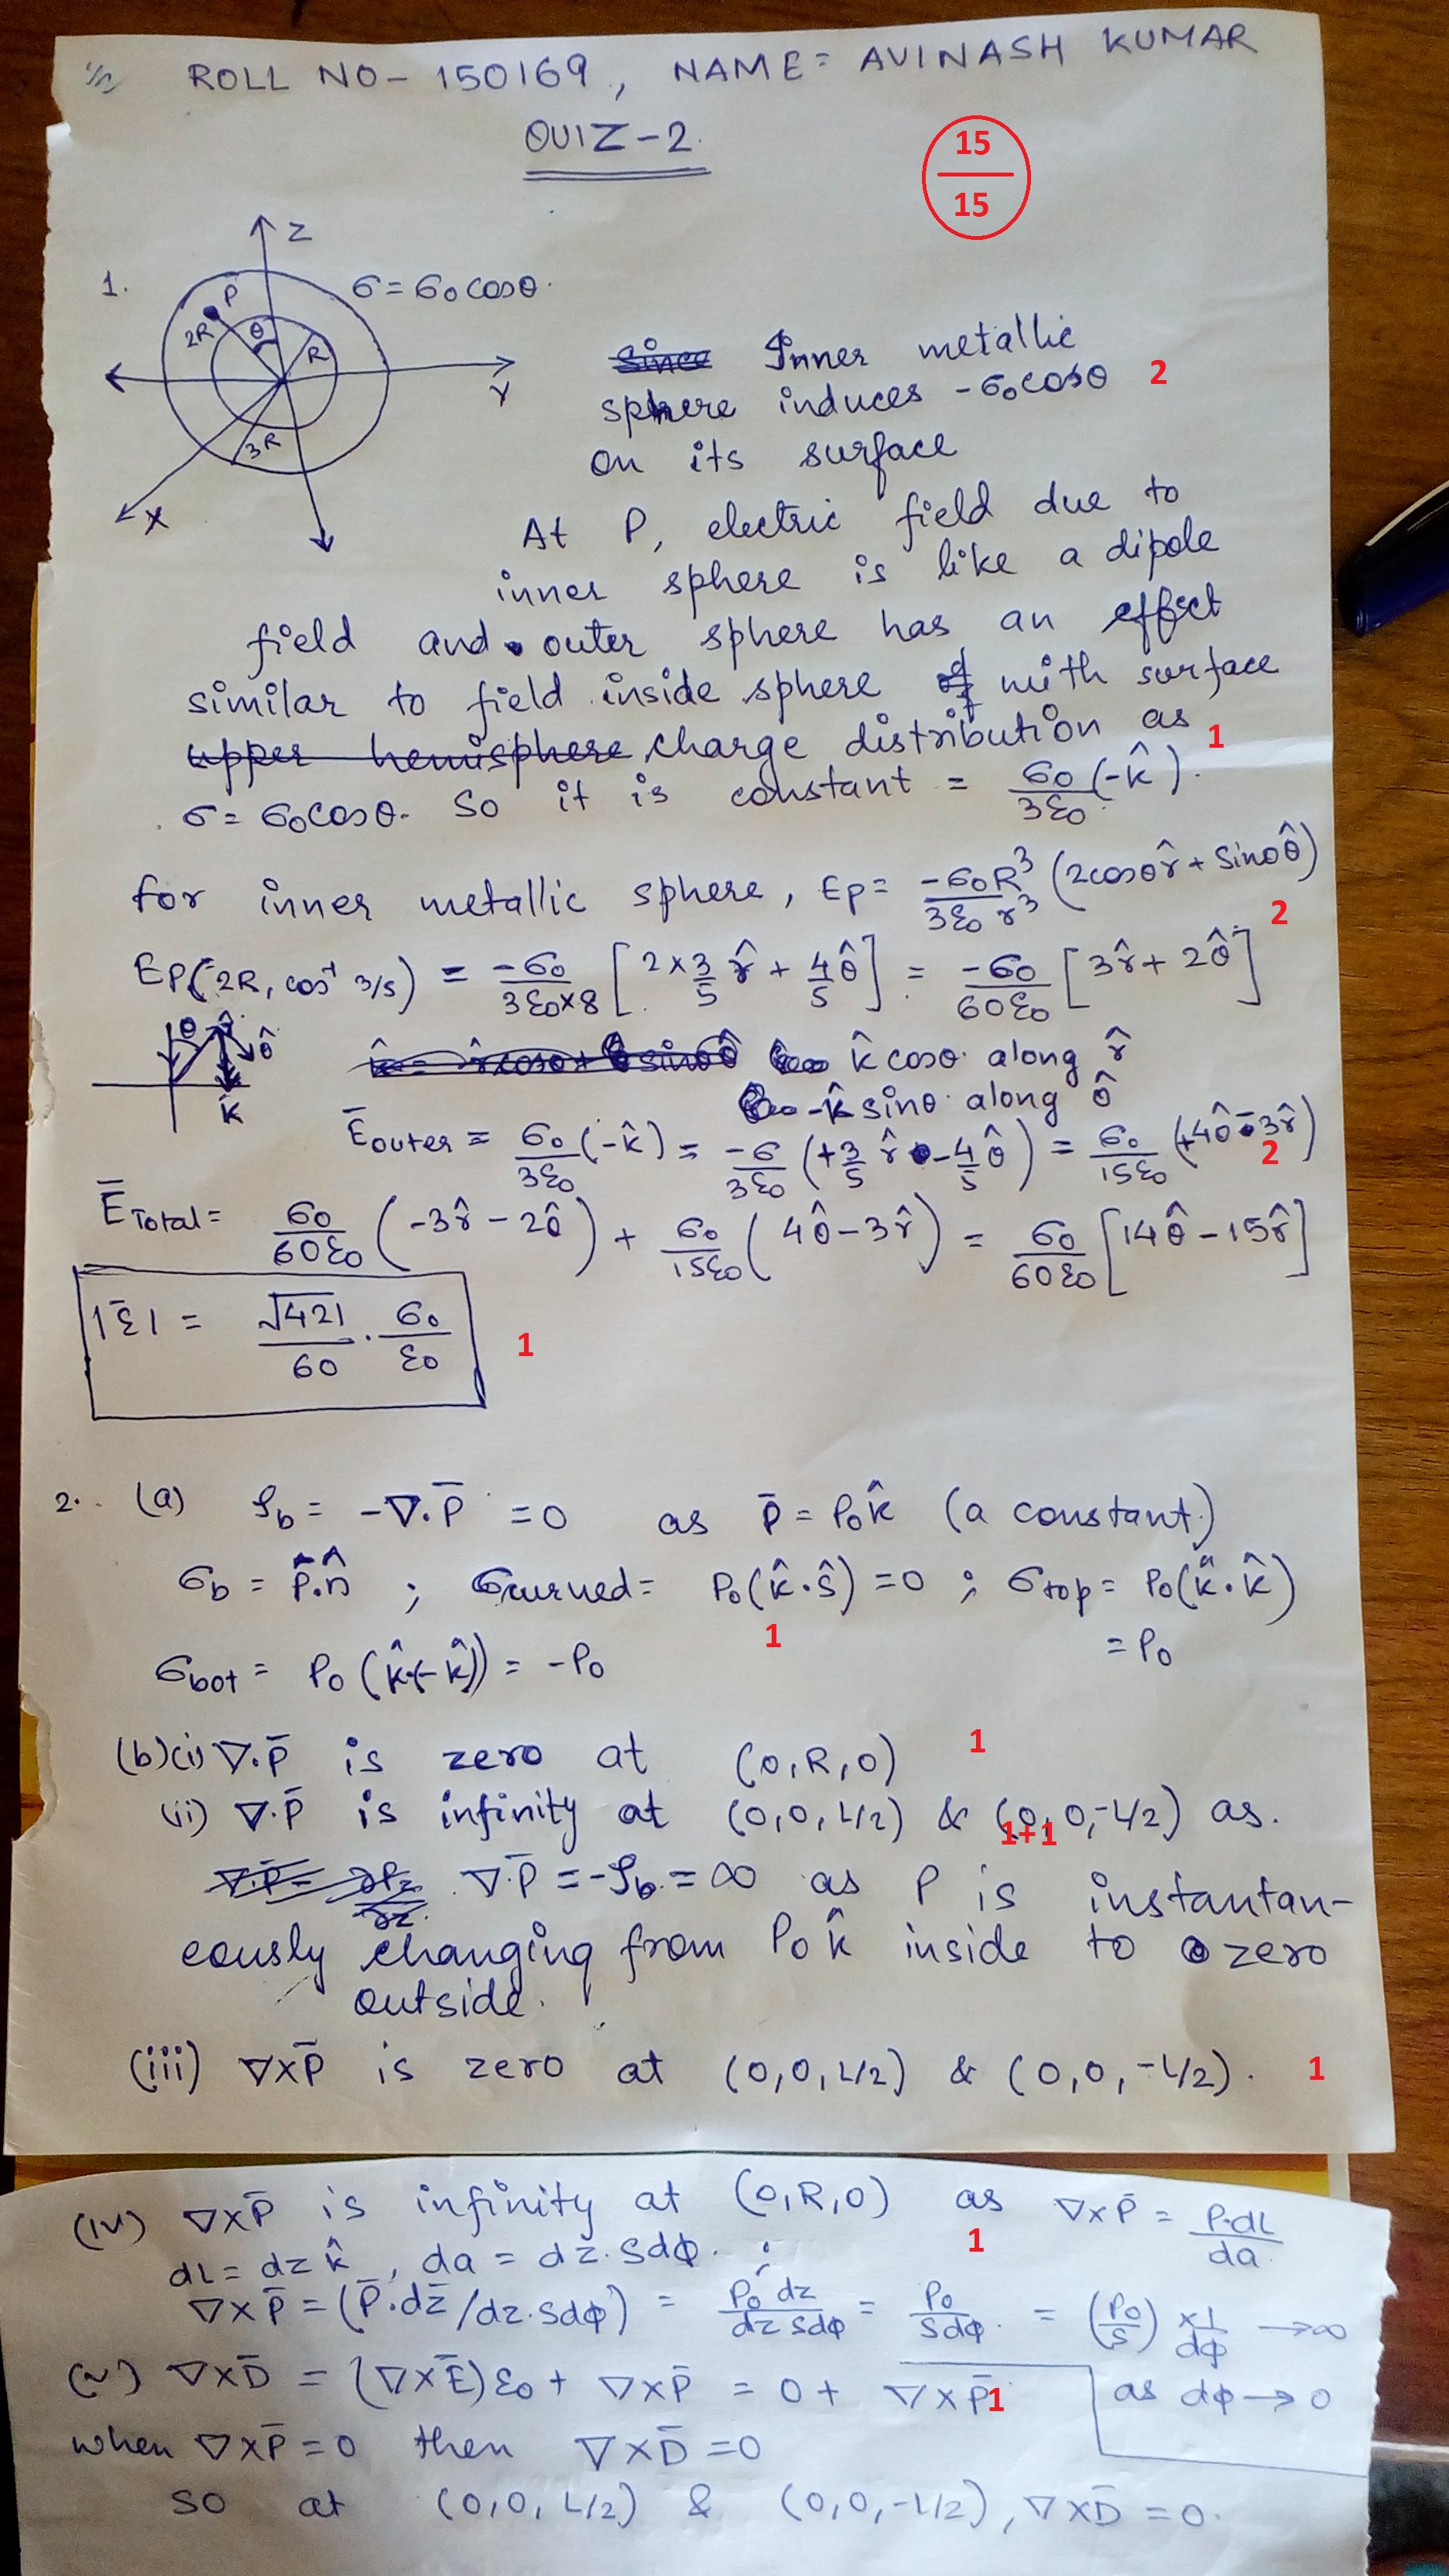 ROLL NO- 150169, NAME= AVINASH KUMAR
QUIZ-2.
15
15
Z
1.
P
σ = σ0 cosθ.
2R
θ
R
Y
3R
X
Since Inner metallic
sphere induces -σ0cosθ 2
on its surface
At P, electric field due to
inner sphere is like a dipole
field and outer sphere has an effect
similar to field inside sphere of with surface
upper hemisphere charge distribution as 1
σ = σ0cosθ. So it is constant = σ0/3ε0 (-k̂).
for inner metallic sphere, Ep = -σ0R³/3ε0 r³ (2cosθ r̂ + sinθ θ̂)
2
Ep(2R, cos⁻¹ 3/5) = -σ0/3ε0×8 [2×3/5 r̂ + 4/5 θ̂] = -σ0/60ε0 [3r̂ + 2θ̂]
θ
θ̂
k̂ = r̂cosθ + sinθ θ̂ k̂ cosθ along r̂
-k̂ sinθ along θ̂
K
E̅outer = σ0/3ε0 (-k̂) = -σ/3ε0 (+3/5 r̂ - 4/5 θ̂) = σ0/15ε0 (+4θ̂ - 3r̂)
2
E̅Total = σ0/60ε0 (-3r̂ - 2θ̂) + σ0/15ε0 (4θ̂ - 3r̂) = σ0/60ε0 [14θ̂ - 15r̂]
|ε̅| = √421/60 . σ0/ε0 1
2. (a) ρb = -∇.P̅ = 0 as P̅ = P0k̂ (a constant)
σb = P̅.n̂ ; σcurved = P0(k̂.ŝ) = 0 ; σtop = P0(k̂.k̂)
1
= P0
σbot = P0 (k̂.(-k̂)) = -P0
(b)(i) ∇.P̅ is zero at (0,R,0) 1
(ii) ∇.P̅ is infinity at (0,0,L/2) & (0,0,-L/2) as.
1+1
∇.P̅ = ∂Pz/∂z. ∇.P̅ = -ρb = ∞ as P is instantan-
eously changing from P0 k̂ inside to zero
outside.
(iii) ∇×P̅ is zero at (0,0,L/2) & (0,0,-L/2). 1
(iv) ∇×P̅ is infinity at (0,R,0) as ∇×P̅ = P.dL/da
1
dL = dz k̂, da = dz.Sdϕ. ;
∇×P̅ = (P̅.dz̅/dz.sdϕ) = P0 dz/dz sdϕ = P0/sdϕ. = (P0/s) × 1/dϕ → ∞
(v) ∇×D̅ = (∇×E̅)ε0 + ∇×P̅ = 0 + ∇×P̅ 1 as dϕ → 0
when ∇×P̅ = 0 then ∇×D̅ = 0
so at (0,0,L/2) & (0,0,-L/2), ∇×D̅ = 0.